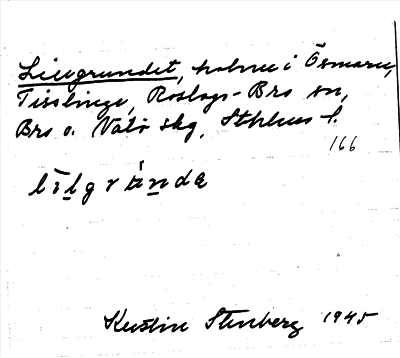 Lillgrundet, holme i Ösmaren,
Tisslinge, Roslags-Bro sn,
Bro o. Vätö skg, Sthlms l.
166
Kerstin Stenberg 1945